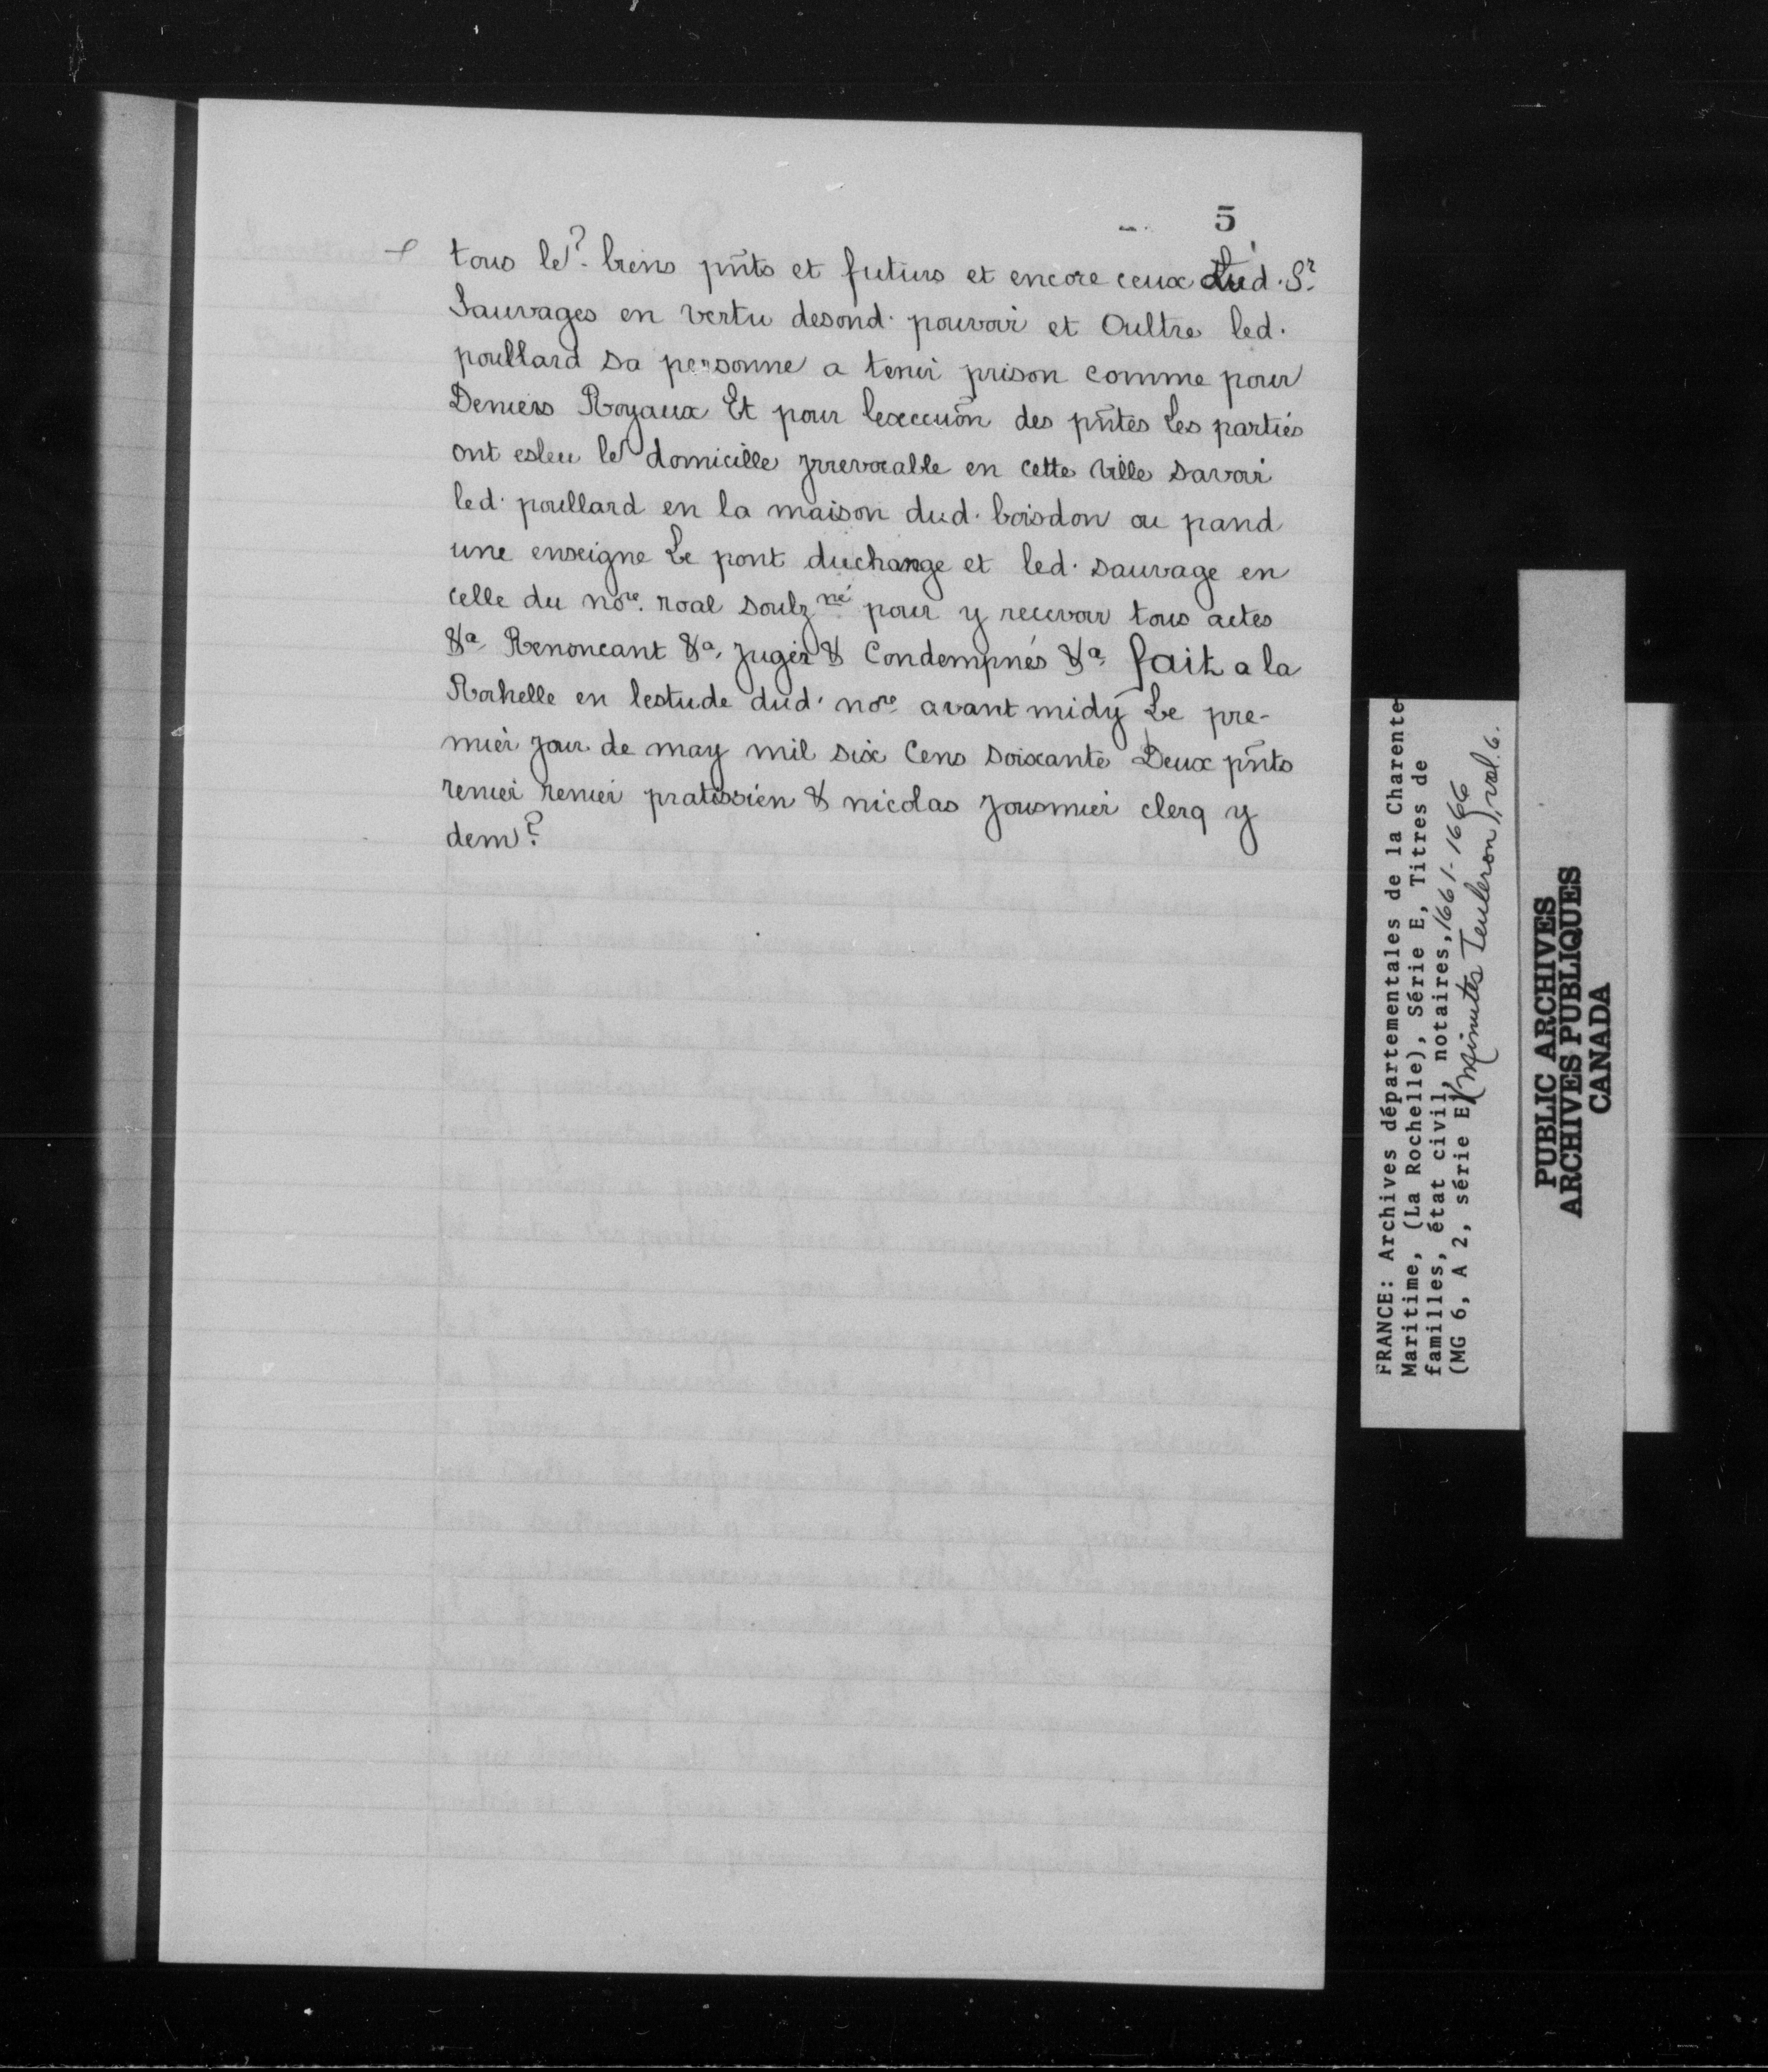 5
tous le? biens pñts et futurs et encore ceux dud. Sr.
Sauvages en vertu desond. pouvoir et Oultre led.
poullard sa personne a tenir prison comme pour
Deniers Royaux Et pour lexecuon̄ des pñtes Les parties
ont esleu le domicille jrrevocable en cette ville savoir
led. poullard en la maison dud. boisdon ou pand
une enseigne Le pont duchange et led. sauvage en
celle du nore. roal soulz né pour y recevoir tous actes
&a. Renoncant &a. Juger & Condempnés &a. fait a la
Rochelle en lestude dud. nore avant midy Le pre-
mier jour de may mil six Cens soixante Deux pñts
renier renier pratissien & nicolas jousmier clerq y
dem?
FRANCE: Archives départementales de la Charente
Maritime, (La Rochelle), Série E, Titres de
familles, état civil, notaires, 1661-1666
(MG 6, A 2, série E) (Minutes Teuleron), vol. 6.
PUBLIC ARCHIVES
ARCHIVES PUBLIQUES
CANADA